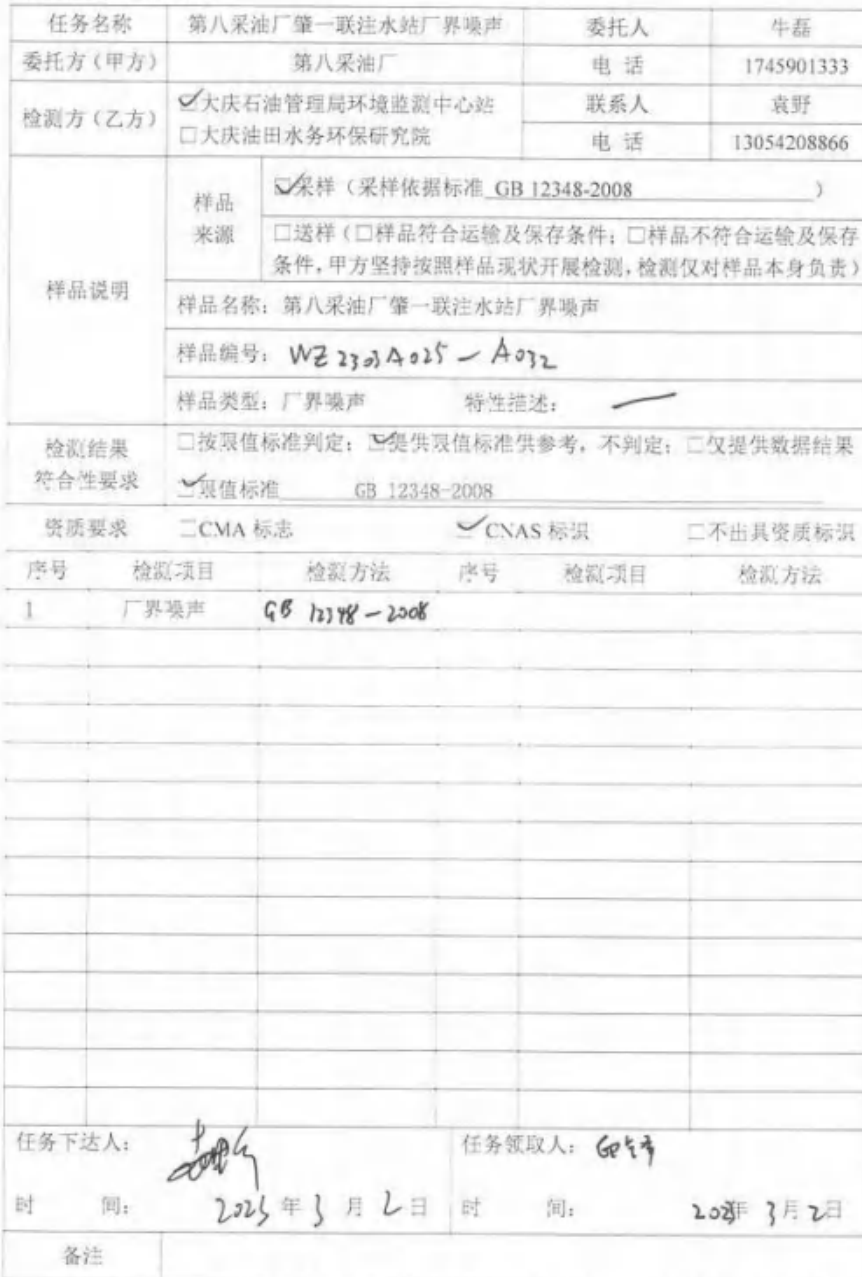 任务名称 第八采油厂肇一联注水站厂界噪声 委托人 牛磊
委托方（甲方） 第八采油厂 电 话 1745901333
检测方（乙方） ☑大庆石油管理局环境监测中心站 联系人 袁野
□大庆油田水务环保研究院 电 话 13054208866
样品说明
样品来源
☑采样（采样依据标准 GB 12348-2008 ）
□送样（□样品符合运输及保存条件；□样品不符合运输及保存
条件，甲方坚持按照样品现状开展检测，检测仅对样品本身负责）
样品名称：第八采油厂肇一联注水站厂界噪声
样品编号：WZ2303A025－A032
样品类型：厂界噪声 特性描述：—
检测结果
符合性要求
□按限值标准判定；☑提供限值标准供参考，不判定；□仅提供数据结果
☑限值标准 GB 12348-2008
资质要求 □CMA 标志 ☑CNAS 标识 □不出具资质标识
序号 检测项目 检测方法 序号 检测项目 检测方法
1 厂界噪声 GB 12348－2008
任务下达人： 任务领取人：
时 间： 2023年3月2日 时 间： 2023年3月2日
备注